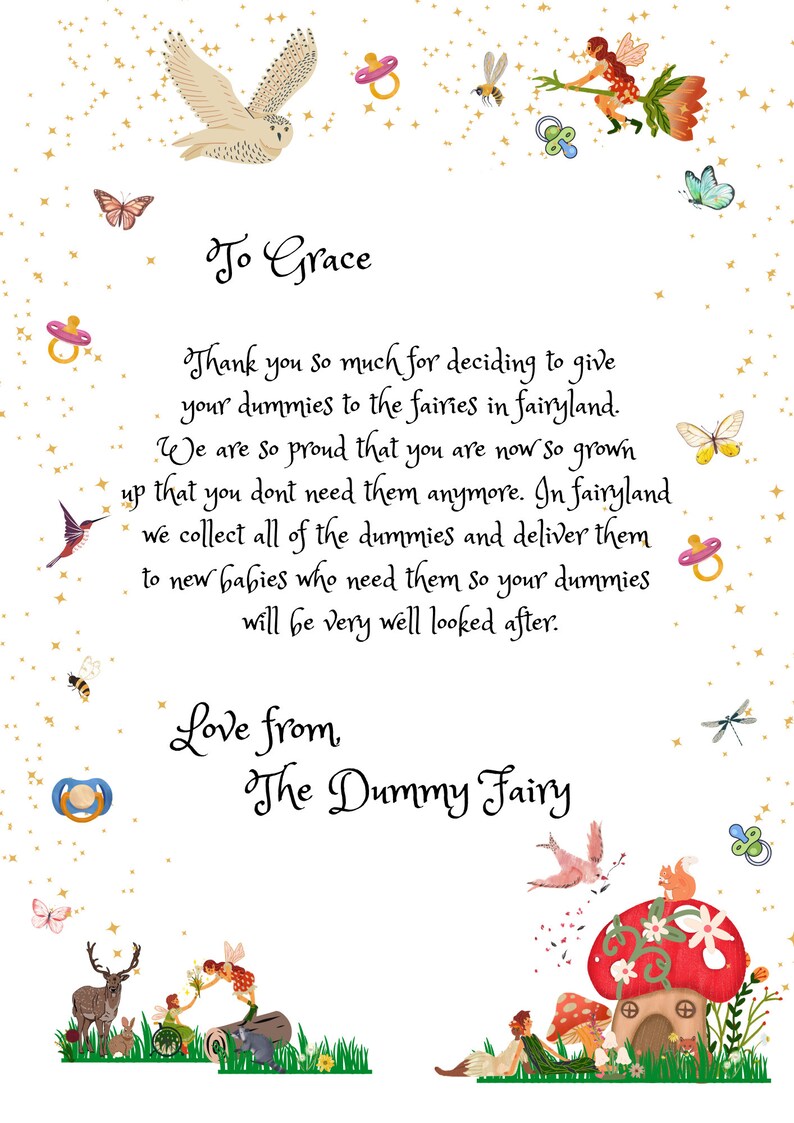 To Grace
Thank you so much for deciding to give
your dummies to the fairies in fairyland.
We are so proud that you are now so grown
up that you dont need them anymore. In fairyland
we collect all of the dummies and deliver them
to new babies who need them so your dummies
will be very well looked after.
Love from,
The Dummy Fairy